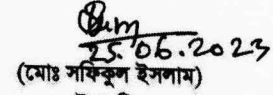 25.06.2023
(মোঃ সফিকুল ইসলাম)